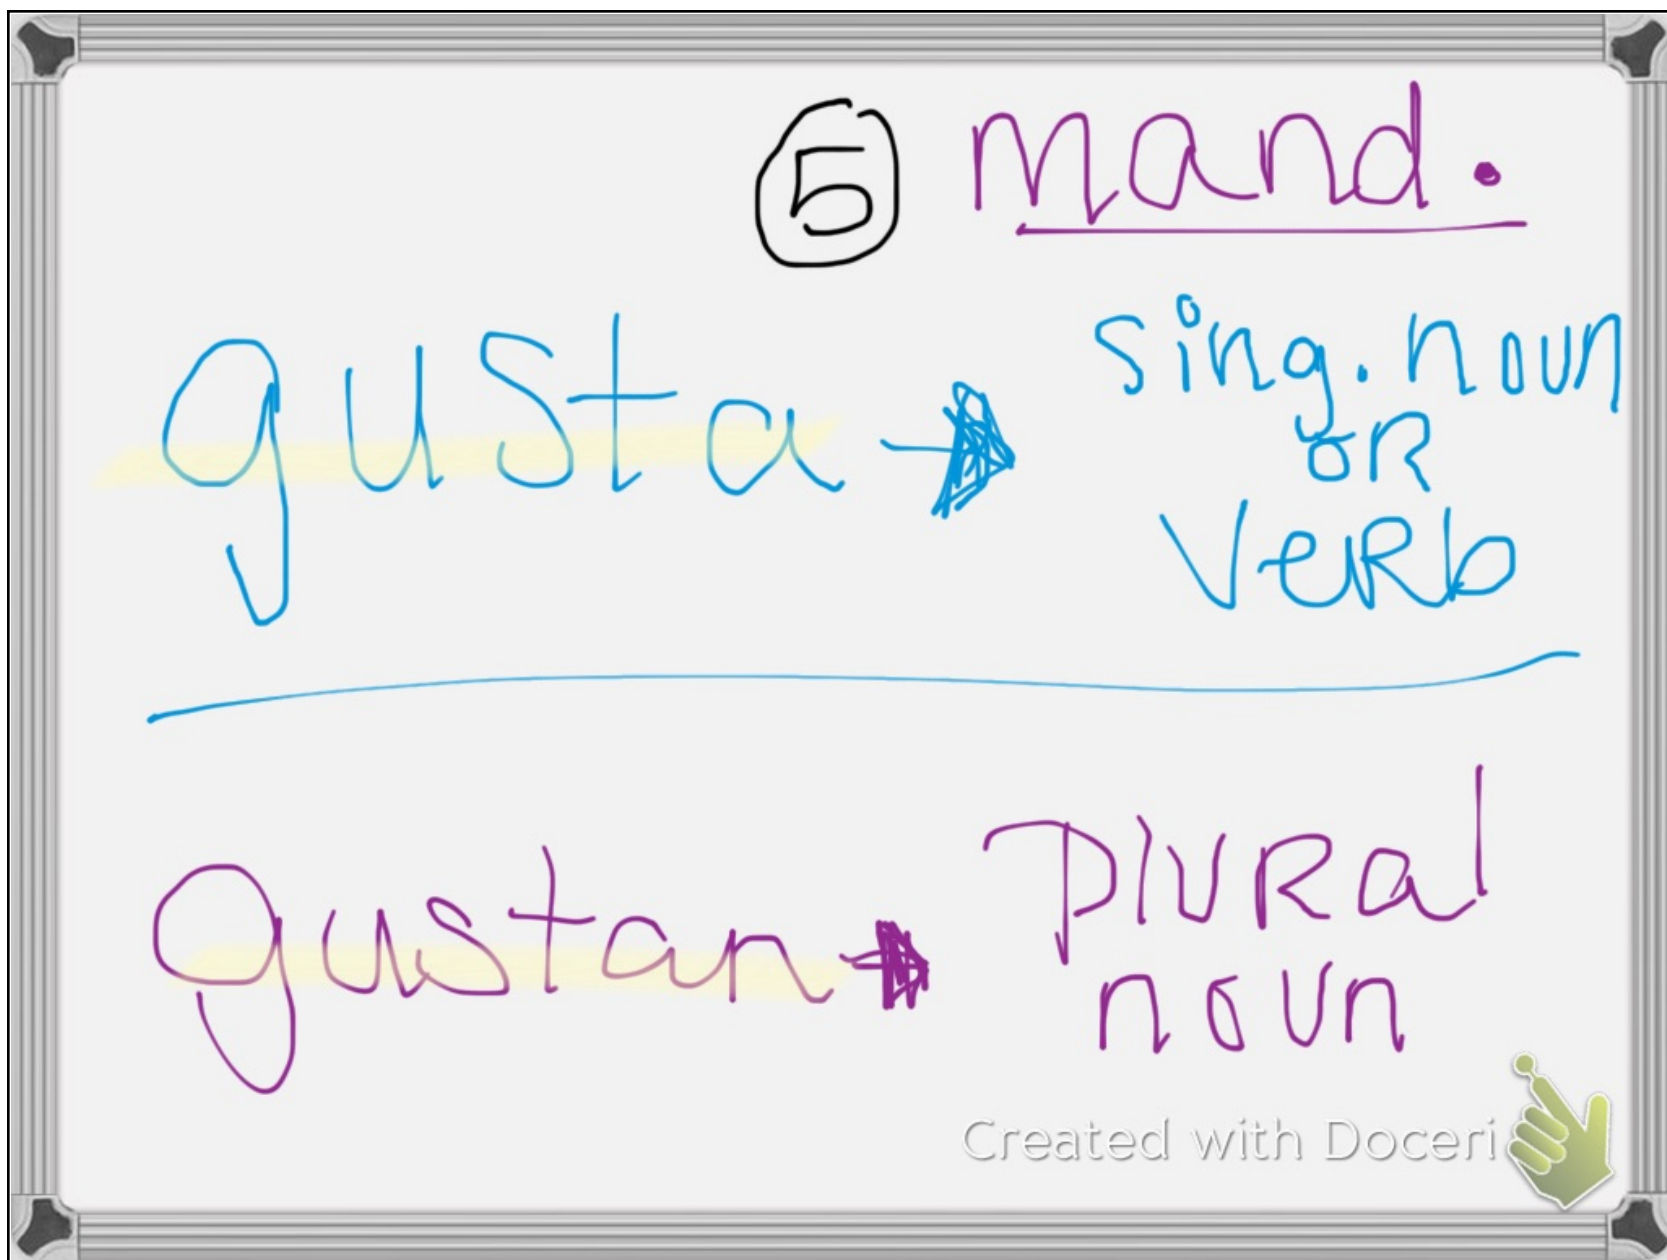 5 mand.
gusta → sing. noun
OR
verb
gustan → plural
noun
Created with Doceri